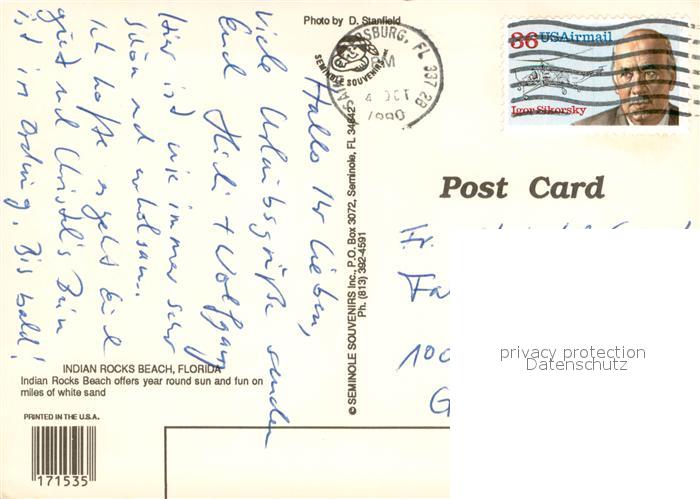 Photo by D. Stanfield
SEMINOLE SOUVENIRS INC.
PM
4 OCT
1990
FL 337 28
36 USAirmail
Igor Sikorsky
Post Card
Hallo Ihr Lieben,
viele Urlaubsgrüße senden
Euch Heidi + Wolfgang
Hier ist wie immer sehr
schön und erholsam.
Ich hoffe es geht Euch
gut und Christel's Bein
ist in Ordnung. Bis bald!
© SEMINOLE SOUVENIRS Inc., P.O. Box 3072, Seminole, FL 34642
Ph. (813) 392-4591
Fr.
Fa
100
G
privacy protection
Datenschutz
INDIAN ROCKS BEACH, FLORIDA
Indian Rocks Beach offers year round sun and fun on
miles of white sand
PRINTED IN THE U.S.A.
171535